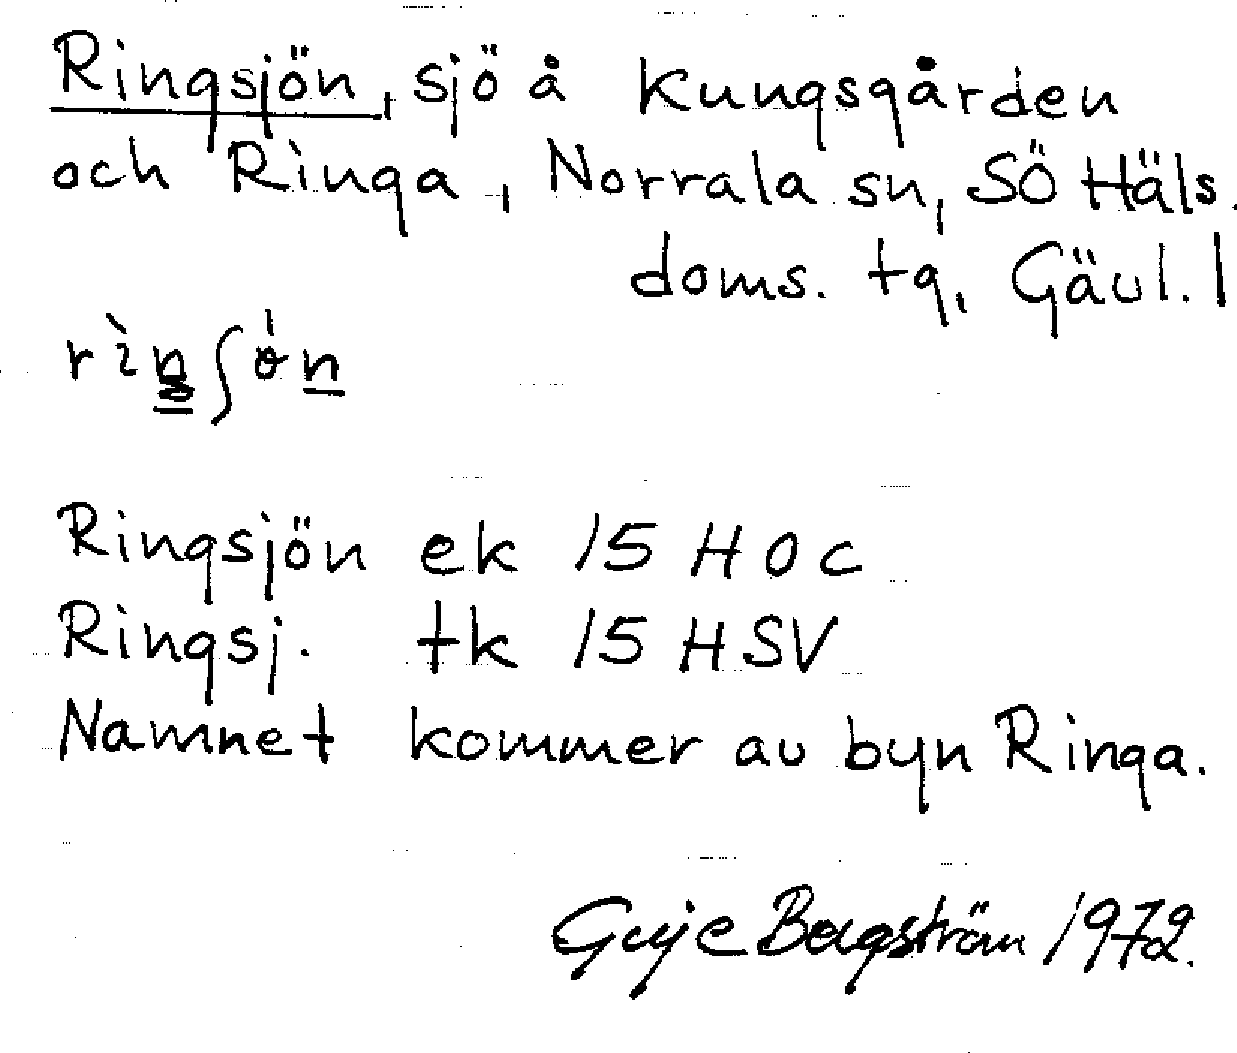 Ringsjön, sjö å Kungsgården
och Ringa, Norrala sn, SÖ Häls.
doms. tg, Gävl. l
Ringsjön ek 15 H 0 c
Ringsj. tk 15 HSV
Namnet kommer av byn Ringa.
Bergström 1972.